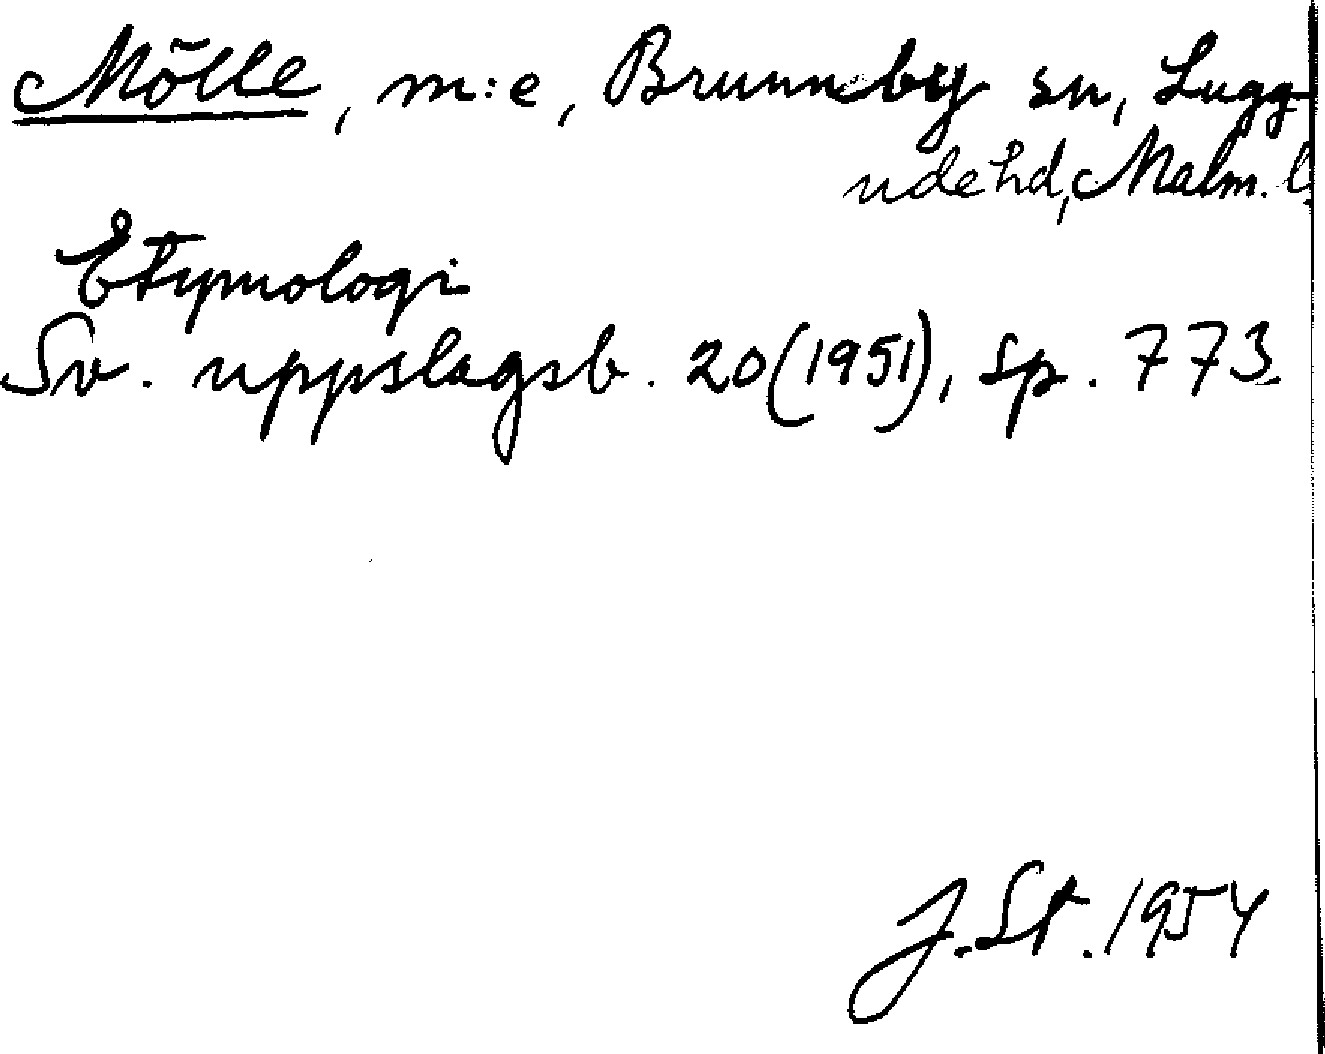 Mölle, m:e, Brunnby sn, Lugg-
ude hd, Malm. l.
Etymologi
Sv. uppslagsb. 20 (1951), sp. 773.
J. St. 1954